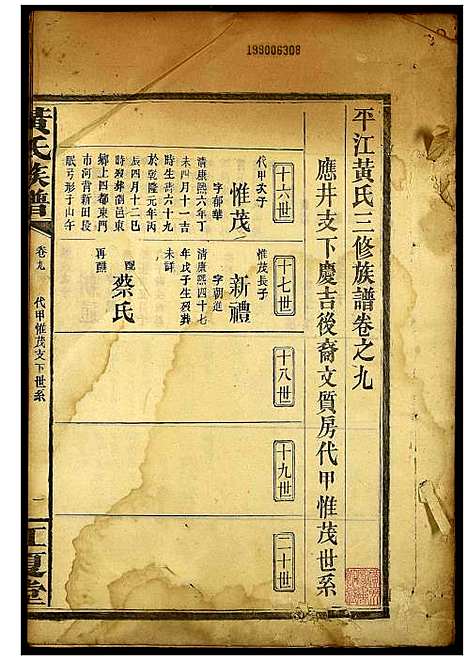 199006308
平江黃氏三修族譜卷之九
應井支下慶吉後裔文質房代甲惟茂世系
十六世
代甲次子
惟茂
字郁華
清康熙六年丁
未四月十一吉
時生壽六十九
於乾隆元年丙
辰四月十二巳
時歿葬瀏邑東
鄉上四都東門
市河背新田段
眠弓形于山午
十七世
惟茂長子
新禮
字朝進
清康熙四十七
年戊子生歿葬
未詳
配
蔡氏
再醮
十八世
十九世
二十世
黃氏族譜
卷九
代甲惟茂支下世系
一
江夏堂